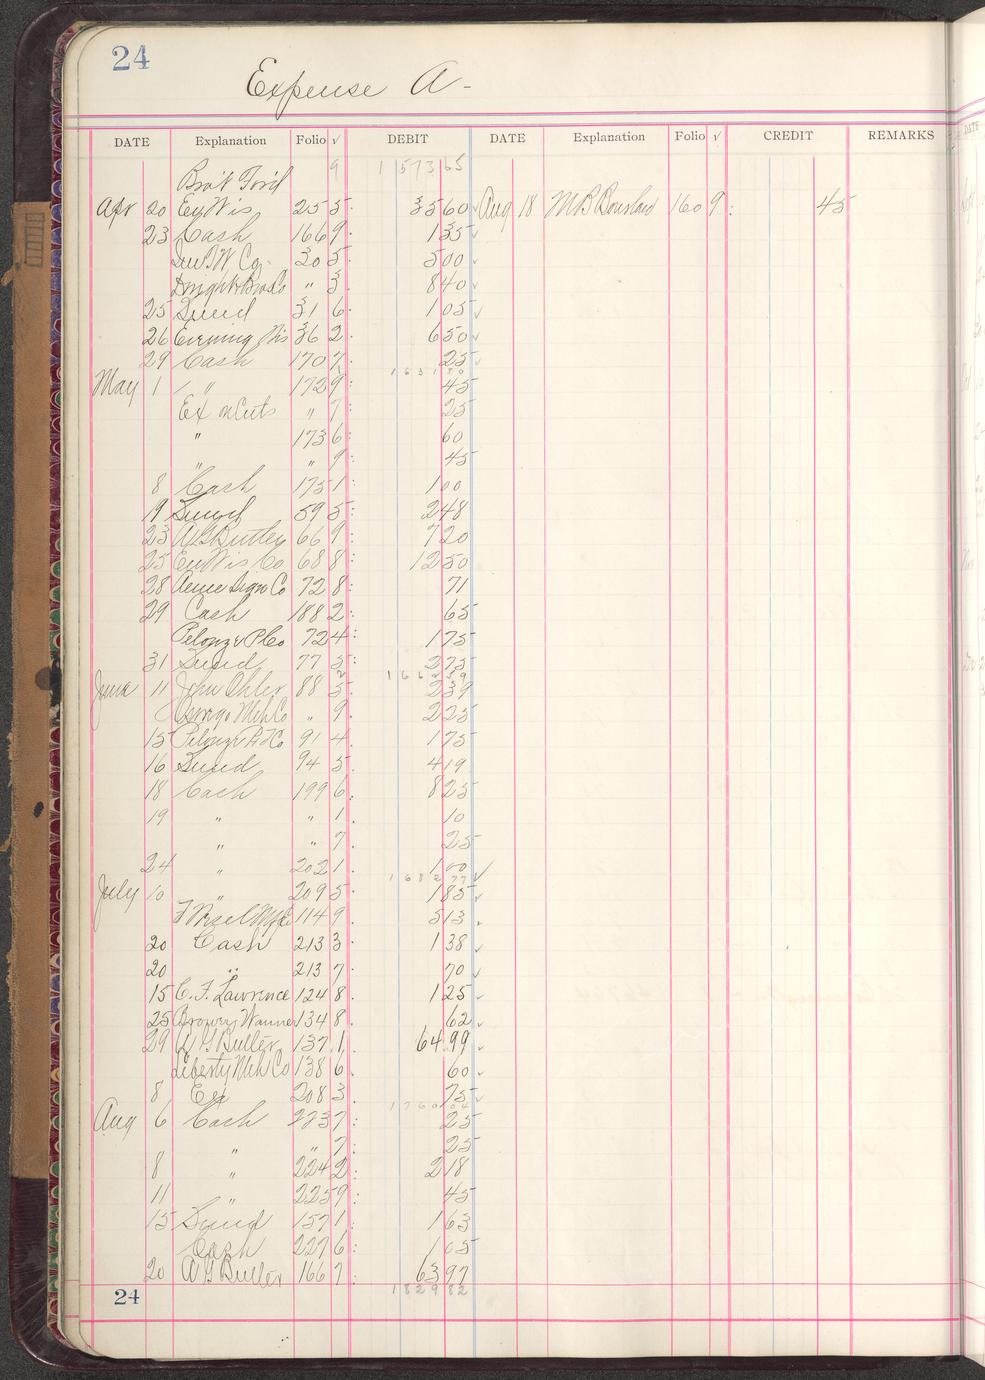 24
Expense A -
DATE Explanation Folio √ DEBIT DATE Explanation Folio √ CREDIT REMARKS
Bro't For'd 9 1573 65
Apr 20 Ev Wis 25 5 35 60 Aug 18 M B 160 9 45
23 Cash 166 9 1 35
Co 30 5 5 00
Bros " 3 8 40
25 Sund 31 6 1 05
26 Evening Wis 36 2 6 50
29 Cash 170 7 25
1631 80
May 1 " 172 9 45
Ex " 7 25
" 173 6 60
" " 9 45
8 Cash 175 1 1 00
19 Sund 59 5 2 48
23 A G Butler 66 9 7 20
25 Ev Wis Co 68 8 12 50
28 Acme Sign Co 72 8 71
29 Cash 188 2 65
Pelouze P Co 72 4 1 75
31 Sund 77 5 2 75
June 11 John Ohler 88 5 2 39
Oswego Mch Co " 9 2 25
15 Pelouze 91 4 1 75
16 Sund 94 5 4 19
18 Cash 199 6 8 25
19 " " 1 10
" " 7 25
24 " 202 1 1 00
1682 77
July 10 " 209 5 1 85
114 9 5 13
20 Cash 213 3 1 38
20 " 213 7 70
15 C. F. Lawrence 124 8 1 25
25 Browery Wanner 134 8 62
29 A G Butler 137 1 64 99
Liberty Mch Co 138 6 60
8 Ex 208 3 75
1760 04
Aug 6 Cash 223 7 25
" " 7 25
8 " 224 2 2 18
11 " 225 9 45
15 Sund 157 1 1 63
Cash 227 6 1 05
20 A G Butler 166 7 63 97
1829 82
24